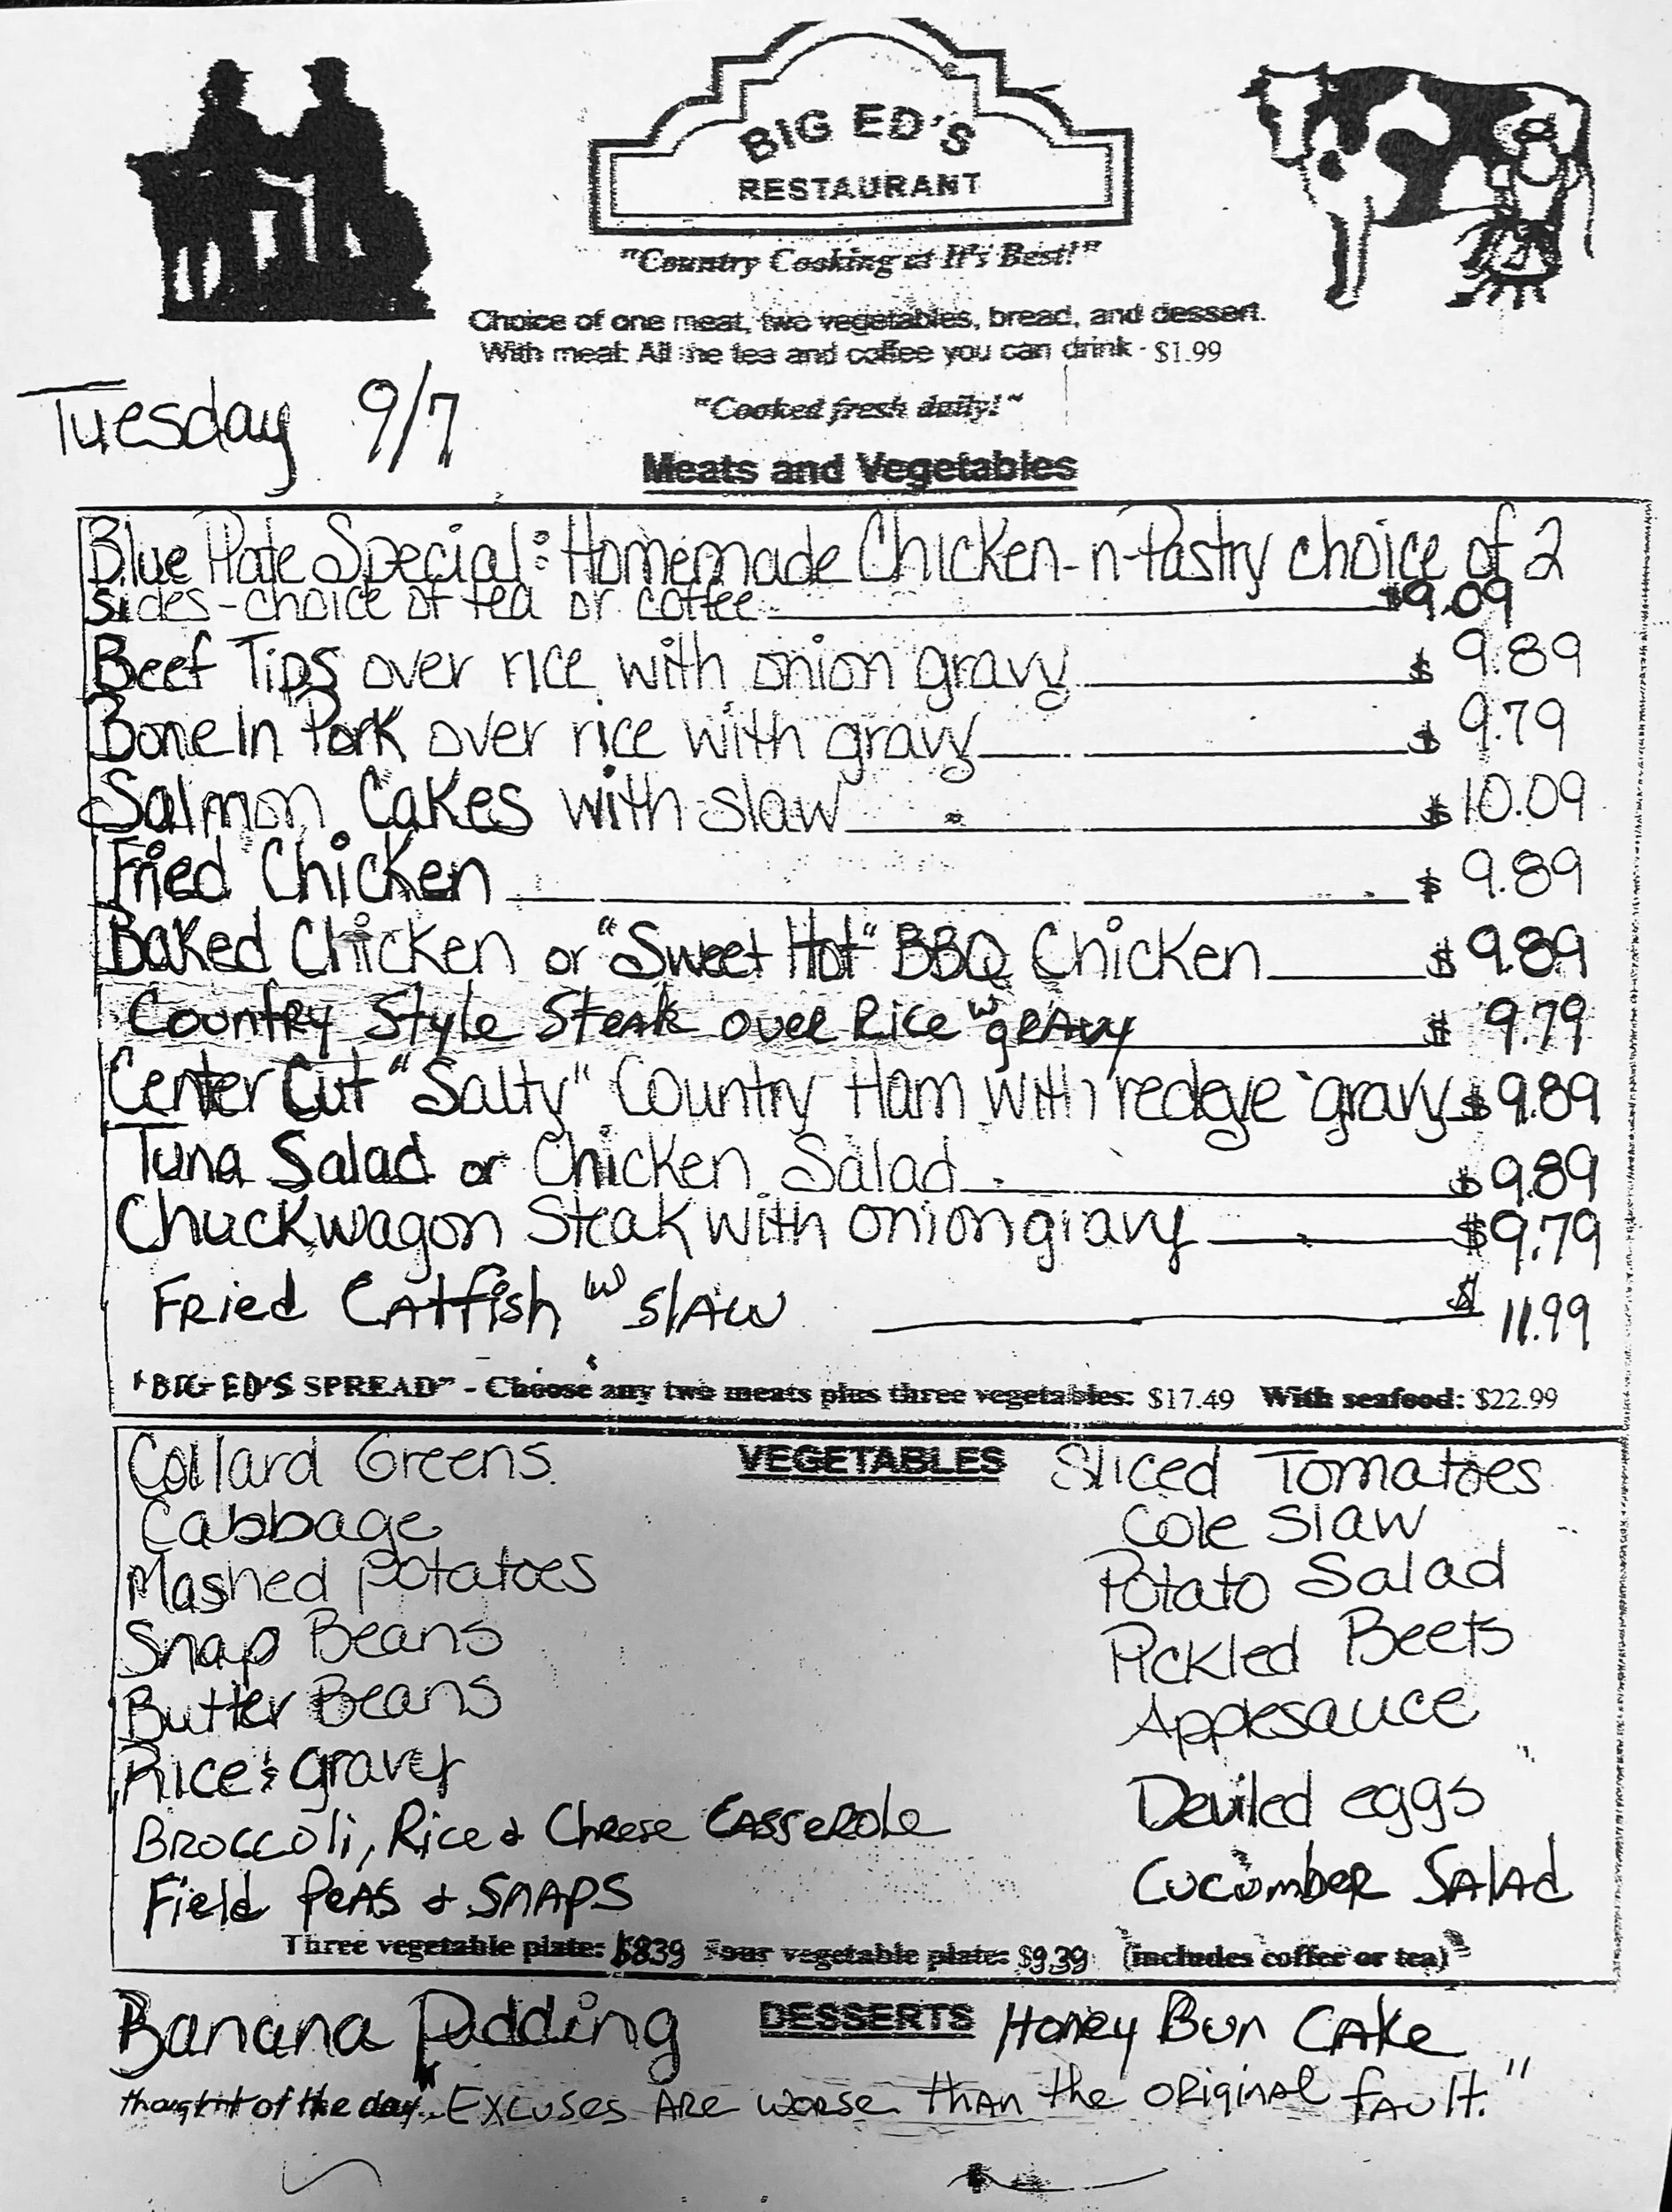 BIG ED'S
RESTAURANT
"Country Cooking at It's Best!"
Choice of one meat, two vegetables, bread, and dessert.
With meal: All the tea and coffee you can drink - $1.99
Tuesday 9/7
"Cooked fresh daily!"
Meats and Vegetables
Blue Plate Special: Homemade Chicken-n-Pastry choice of 2
sides - choice of tea or coffee $9.09
Beef Tips over rice with onion gravy $ 9.89
Bone In Pork over rice with gravy $ 9.79
Salmon Cakes with slaw $ 10.09
Fried Chicken $ 9.89
Baked Chicken or "Sweet Hot" BBQ Chicken $ 9.89
Country Style Steak over Rice w gravy $ 9.79
Center Cut "Salty" Country Ham with redeye gravy $ 9.89
Tuna Salad or Chicken Salad $ 9.89
Chuckwagon Steak with onion gravy $9.79
Fried Catfish w slaw $ 11.99
"BIG ED'S SPREAD" - Choose any two meats plus three vegetables: $17.49 With seafood: $22.99
VEGETABLES
Collard Greens
Cabbage
Mashed potatoes
Snap Beans
Butter Beans
Rice & gravy
Broccoli, Rice & Cheese Casserole
Field Peas & Snaps
Sliced Tomatoes
Cole Slaw
Potato Salad
Pickled Beets
Applesauce
Deviled eggs
Cucumber Salad
Three vegetable plate: $8.39 Four vegetable plate: $9.39 (includes coffee or tea)
DESSERTS
Banana Pudding
Honey Bun Cake
thought of the day... Excuses are worse than the original fault."